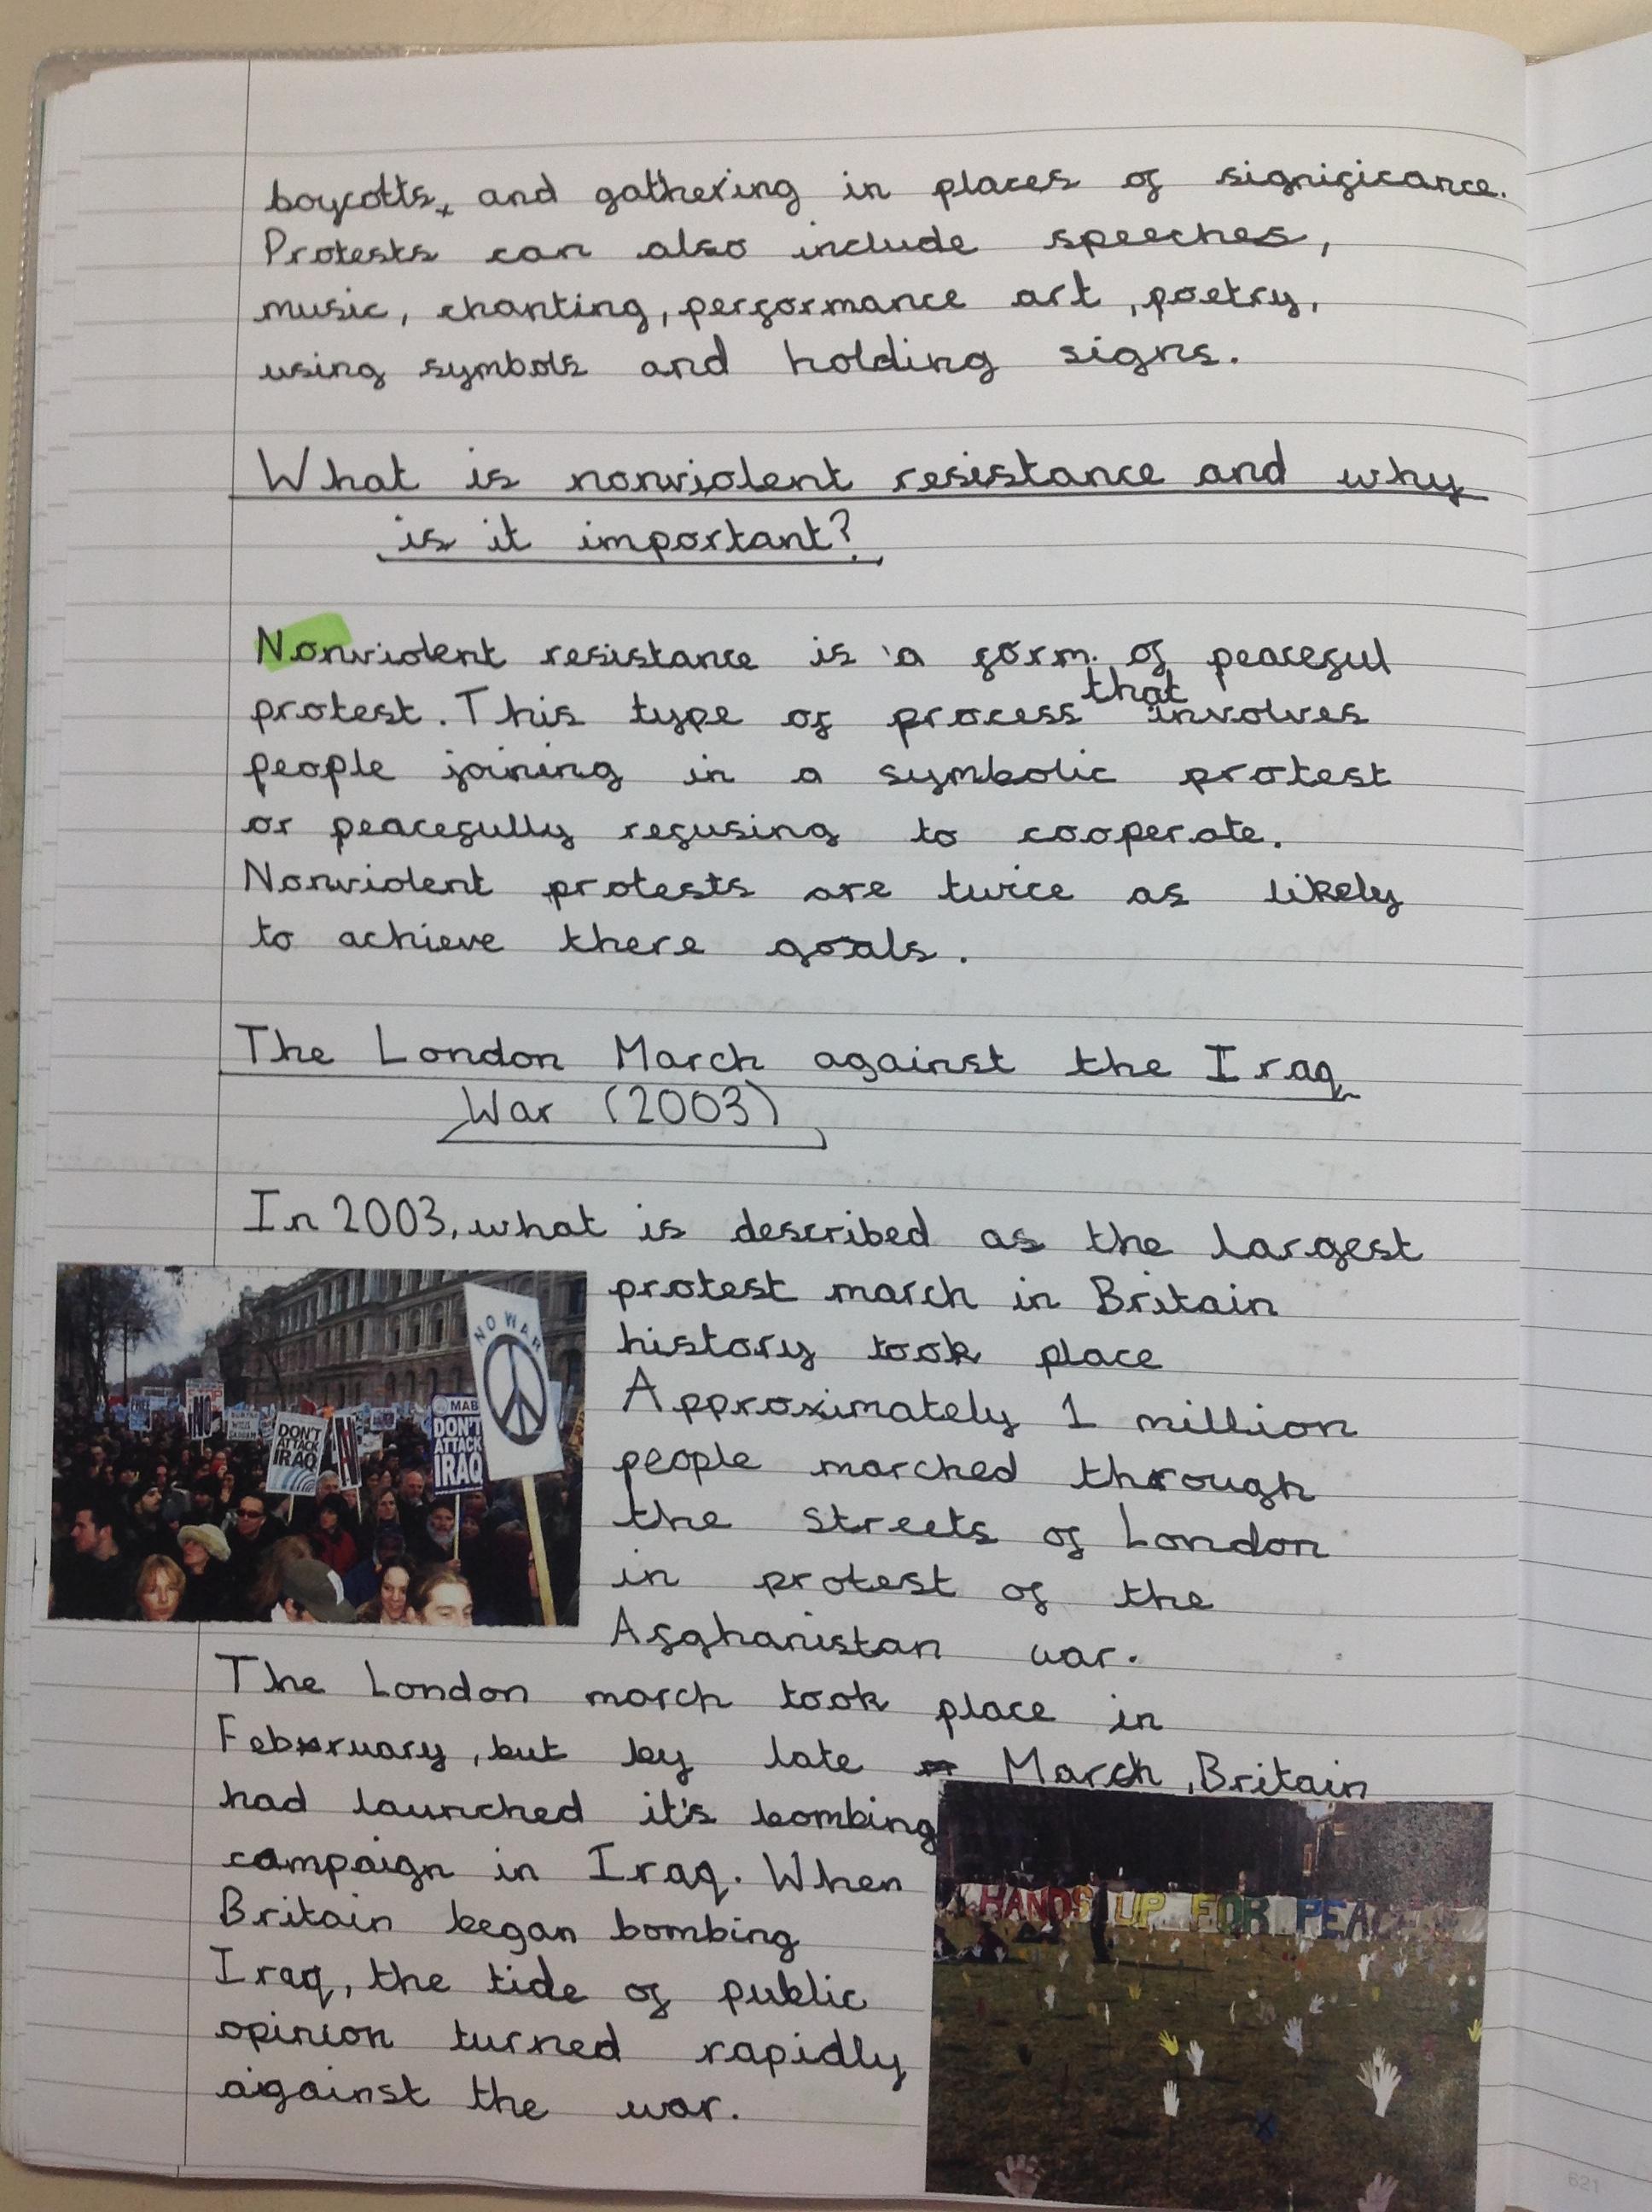 boycotts, and gathering in places of significance.
Protests can also include speeches,
music, chanting, performance art, poetry,
using symbols and holding signs.
What is nonviolent resistance and why
is it important?
Nonviolent resistance is a form of peaceful
protest. This type of process that involves
people joining in a symbolic protest
or peacefully refusing to cooperate.
Nonviolent protests are twice as likely
to achieve there goals.
The London March against the Iraq
War (2003)
In 2003, what is described as the largest
protest march in Britain
history took place
Approximately 1 million
people marched through
the streets of London
in protest of the
Afghanistan war.
NO WAR
DON'T
ATTACK
IRAQ
MAB
DON'T
ATTACK
IRAQ
The London march took place in
February, but by late March, Britain
had launched it's bombing
campaign in Iraq. When
Britain began bombing
Iraq, the tide of public
opinion turned rapidly
against the war.
HANDS UP FOR PEACE
621